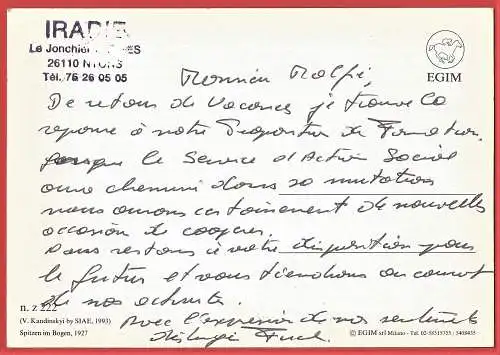 IRADIE
Le Jonchier
26110 NYONS
Tél. 75 26 05 05
EGIM
Monsieur
De retour de vacances je trouve la
reponse à notre Proposition de Formation.
le Service d'Action Social
aura cheminé dans sa mutation
nous aurons certainement de nouvelles
occasion de coopérer.
Nous restons à votre disposition pour
le futur et vous tiendrons au courant
de nos activités.
Avec l'expression de nos sentiments
n. Z 222
(V. Kandinskyi by SIAE, 1993)
Spitzen im Bogen, 1927
© EGIM srl Milano - Tel. 02-58315755 - 5469435